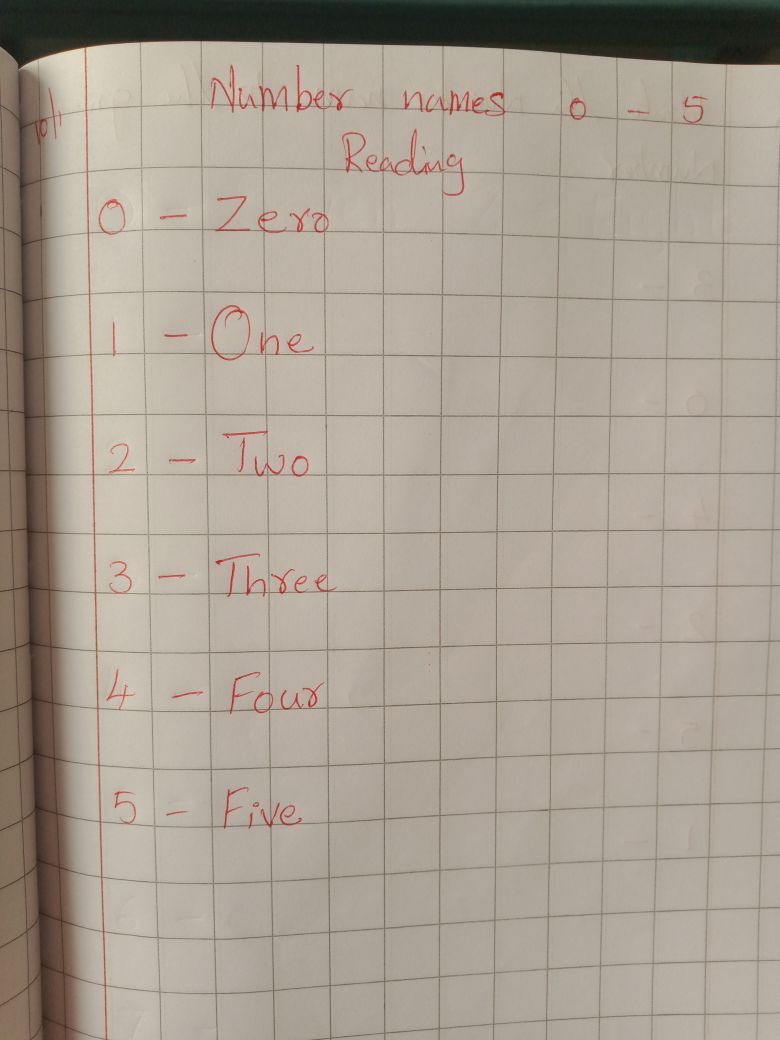 Number names 0 - 5
Reading
0 - Zero
1 - One
2 - Two
3 - Three
4 - Four
5 - Five